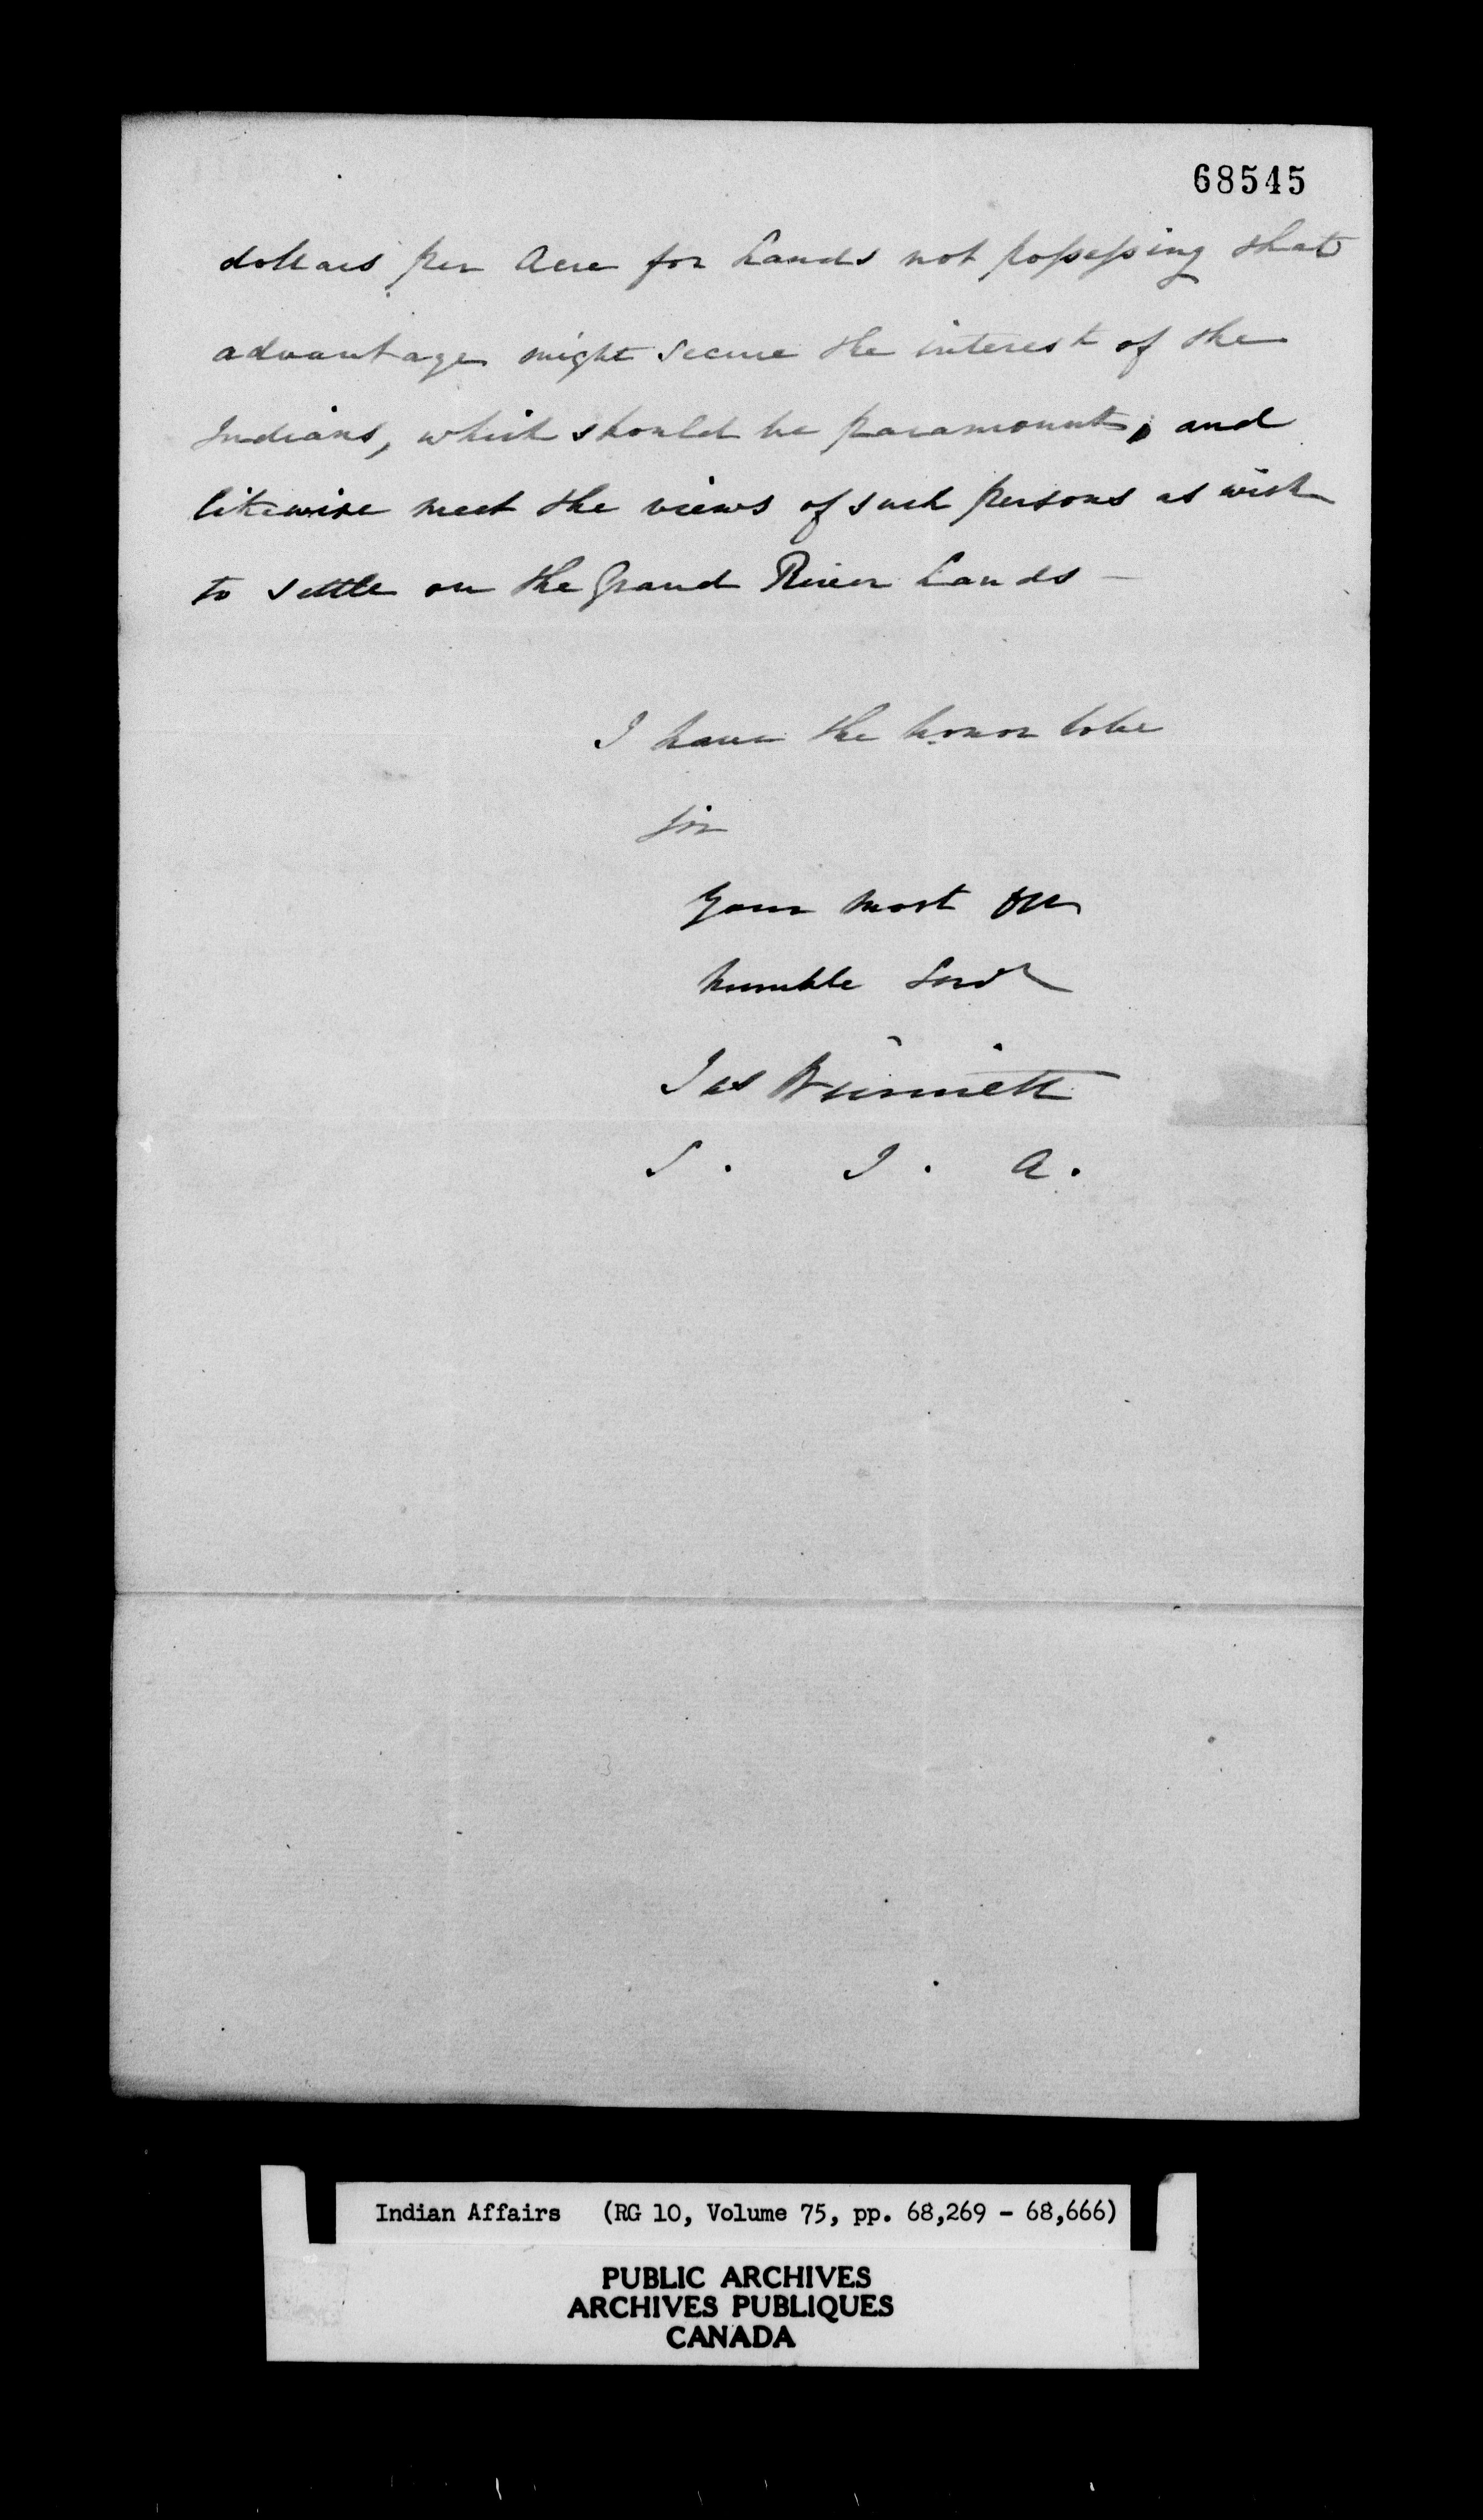 68545
dollars per Acre for Lands not possessing that
advantage might secure the interest of the
Indians, which should be paramount, and
likewise meet the views of such persons as wish
to settle on the Grand River Lands —
I have the honor to be
Sir
Your most
humble Servt
Jas Winniett
S. I. A.
Indian Affairs (RG 10, Volume 75, pp. 68,269 - 68,666)
PUBLIC ARCHIVES
ARCHIVES PUBLIQUES
CANADA